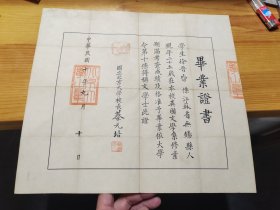 畢業證書
學生徐曾 係江蘇省無錫縣人
現年二十五歲在本校英國文學系修業
期滿考查成績及格准予畢業依大學
令第十條得稱文學士此證
國立北京大學校長蔡元培
中華民國 年 月 日